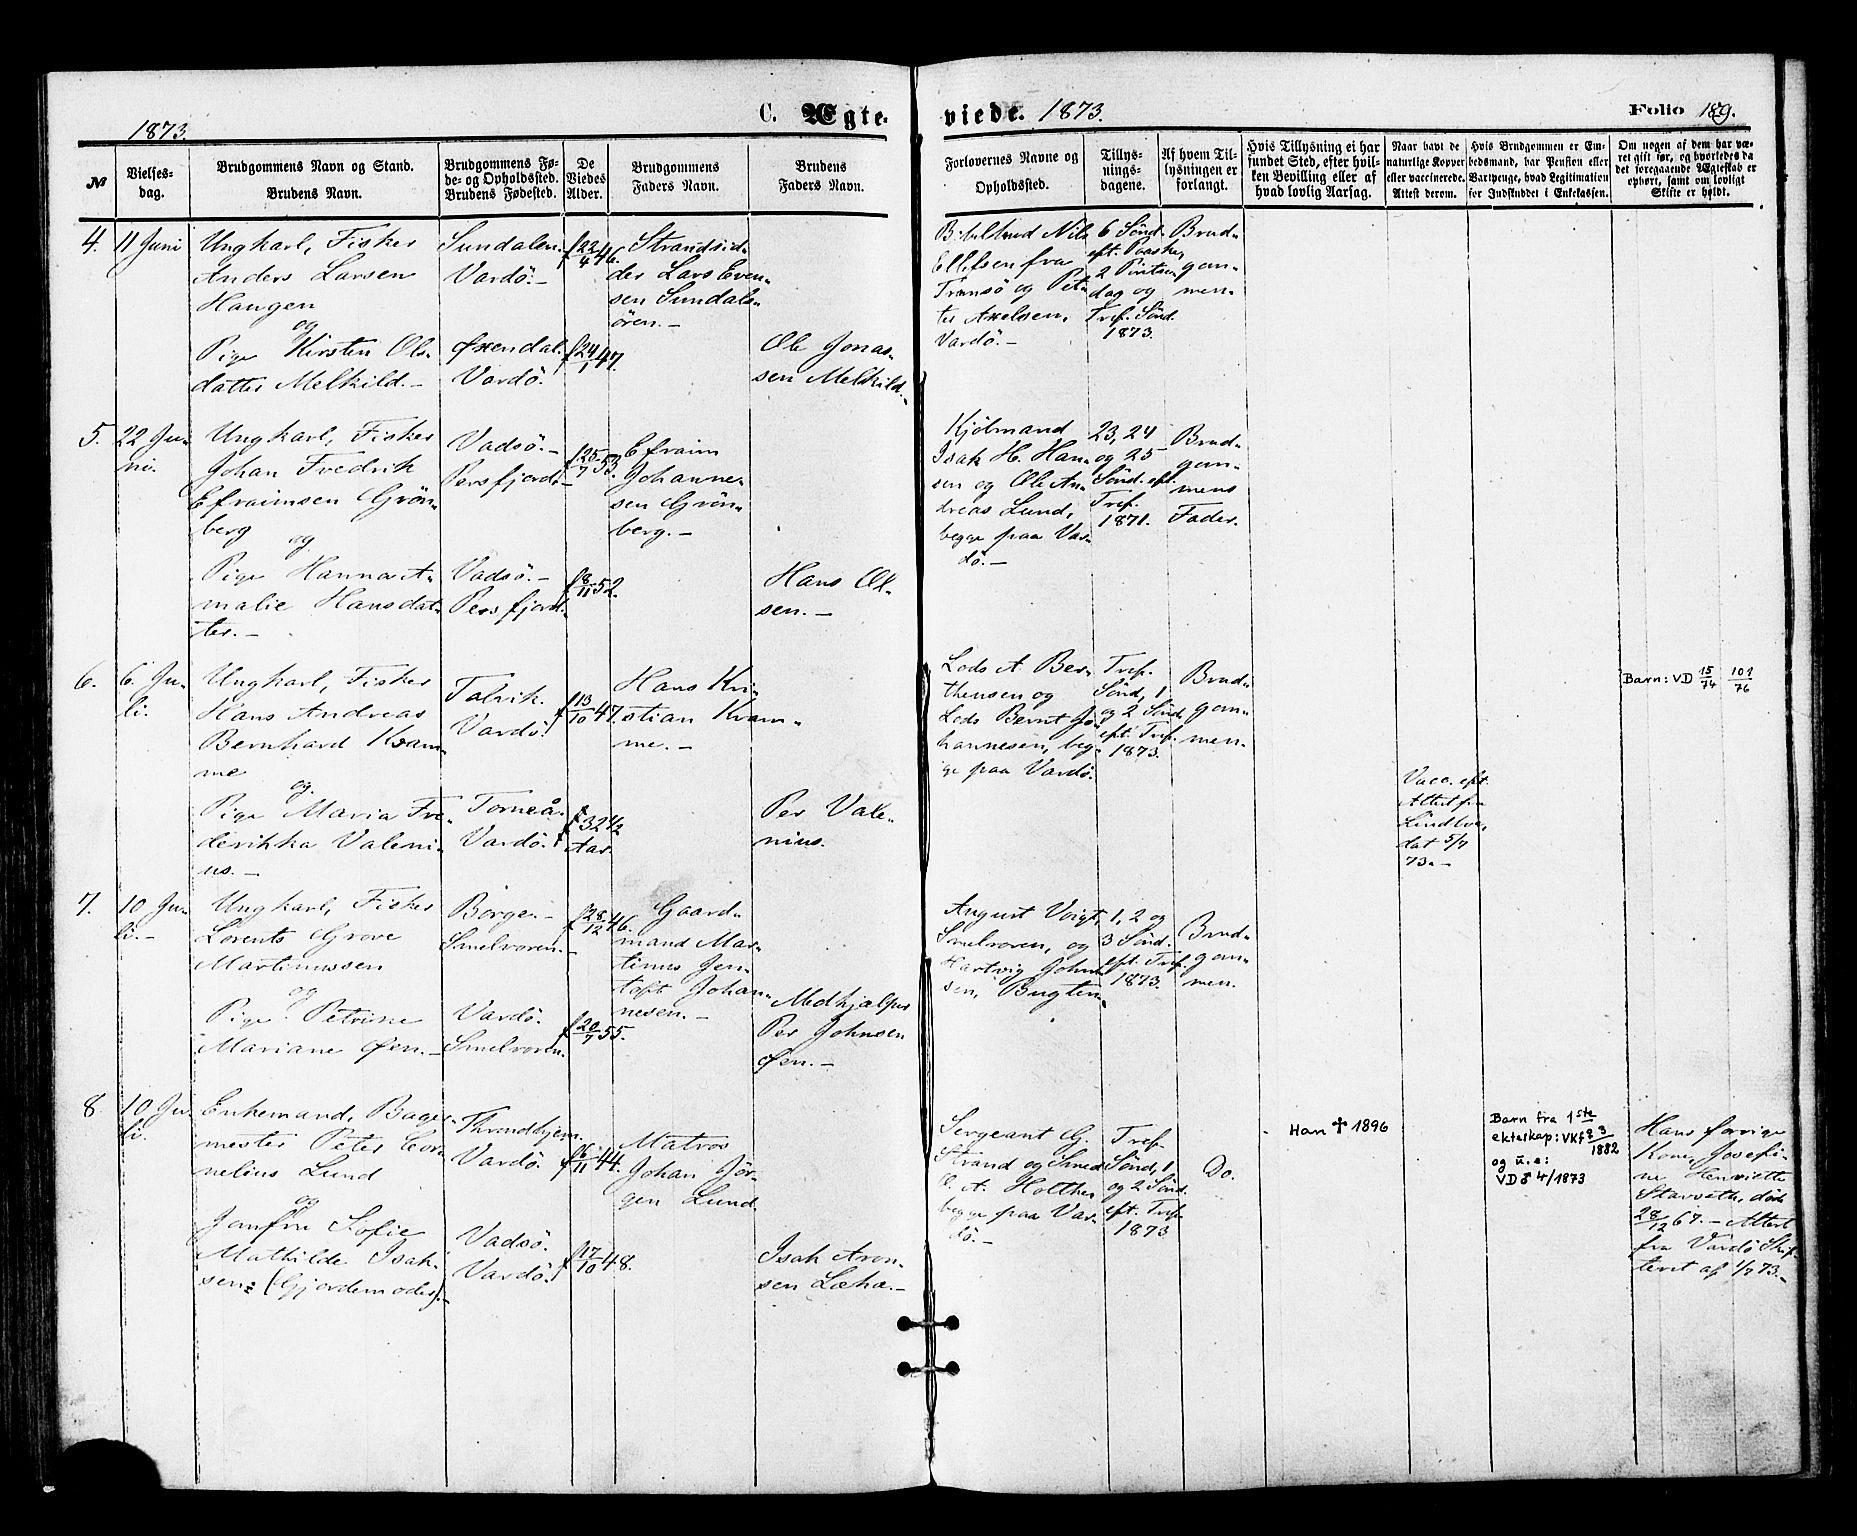 1873.
C. Ægte-
viede. 1873.
Folio 189.
№
Vielses-
dag.
Brudgommens Navn og Stand.
Brudens Navn.
Brudgommens Fø-
de- og Opholdssted.
Brudens Fødested.
De
Viedes
Alder.
Brudgommens
Faders Navn.
Brudens
Faders Navn.
Forlovernes Navne og
Opholdssted.
Tillys-
nings-
dagene.
Af hvem Til-
lysningen er
forlangt.
Hvis Tillysning ei har
fundet Sted, efter hvil-
ken Bevilling eller af
hvad lovlig Aarsag.
Naar havt de
naturlige Kopper
eller vaccinerede.
Attest derom.
Hvis Brudgommen er Em-
bedsmand, har Pension eller
Vartpenge, hvad Legitimation
for Indskuddet i Enkekassen.
Om nogen af dem har væ-
ret gift før, og hvorledes da
det foregaaende Ægteskab er
ophørt, samt om lovligt
Skifte er holdt.
4.
11 Juni
Ungkarl, Fisker
Anders Larsen
Haugen
og
Pige Kirsten Ols-
datter Melkild.-
Sundalen.
Vardö.-
Øxendal.
Vardö.
f 22/4 46.
f 24/1 47.
Strandsid-
der Lars Even-
sen Sundals-
ören.-
Ole Jonas-
sen Melkild.-
Bibelbud Nils
Ellefsen fra
Tromsö og Pet-
ter Axelsen,
Vardö.-
6 Sönd.
eft. Paaske,
2 Pintse-
dag og
Tref. Sönd.
1873.
Brud-
gom-
men.
5.
22 Ju-
ni.
Ungkarl, Fisker
Johan Fredrik
Efraimsen Grön-
berg
og
Pige Hanna A-
malie Hansdat-
ter.-
Vadsö.-
Persfjord.-
Vadsö.-
Persfjord.
f 25/7 53.
f 8/11 52.
Efraim
Johanne-
sen Grön-
berg.-
Hans Ol-
sen.-
Kjölmand
Isak H. Han-
sen og Ole An-
dreas Lund,
begge paa Var-
dö.-
23, 24
og 25
Sönd. eft.
Tref.
1871.
Brud-
gom-
mens
Fader.
6.
6. Ju-
li.
Ungkarl, Fisker
Hans Andreas
Bernhard Kvam-
me
og
Pige Maria Fre-
derikka Valeni-
us.-
Talvik.
Vardö.
Torneå.
Vardö.
f 13/10 47.
f 32 1/2
Aar.
Hans Kri-
stian Kvam-
me.-
Per Vale-
nius.
Lods A. Ber-
thensen og
Lods Bernt Jo-
hannesen, beg-
ge paa Vardö.
Tref.
Sönd, 1
og 2 Sönd,
eft. Tref.
1873.
Brud-
gom-
men.
Vacc. eft.
Attest fra
dat 5/7
73.-
Barn: VD 15/74 101/76
7.
10 Ju-
li.-
Ungkarl, Fisker
Lorents Grove
Martinussen
og
Pige Petrine
Mariane Øen.-
Borgen-
Smelroren.-
Vardö.
Smelroren.
f 28/12 46.
f 20/7 55.
Gaard-
mand Mar-
tinus Jen-
toft Johan-
nesen.-
Medhjælper
Per Johnsen
Øen.-
August Voigt,
Smelroren, og
Hartvig John-
sen, Bugten.
1, 2 og
3 Sönd.
eft. Tref.
1873.
Brud-
gom-
men.
8.
10 Ju-
li.
Enkemand, Bager-
mester Peter Cor-
nelius Lund
og
Jomfru Sofie
Mathilde Isak-
sen: (Gjordemoder).-
Throndhjem.
Vardö.
Vadsö.
Vardö.
f 16/11 44.
f 17/10 48.
Matros
Johan Jör-
gen Lund.
Isak Aron-
sen Læha.-
Sergeant G.
Strand og Smed
O. A. Holther
begge paa Var-
dö.-
Tref.
Sönd, 1
og 2 Sönd.
eft. Tref.
1873
Do.
Han ✝ 1896
Barn fra 1ste
ekteskap: VKf 83/1882
og u.e:
VD♂ 4/1873
Hans forrige
Kone, Josefi-
ne Henriette
död
28/12 67.- Attest
fra Vardö Skif-
teret af 1/7 73.-